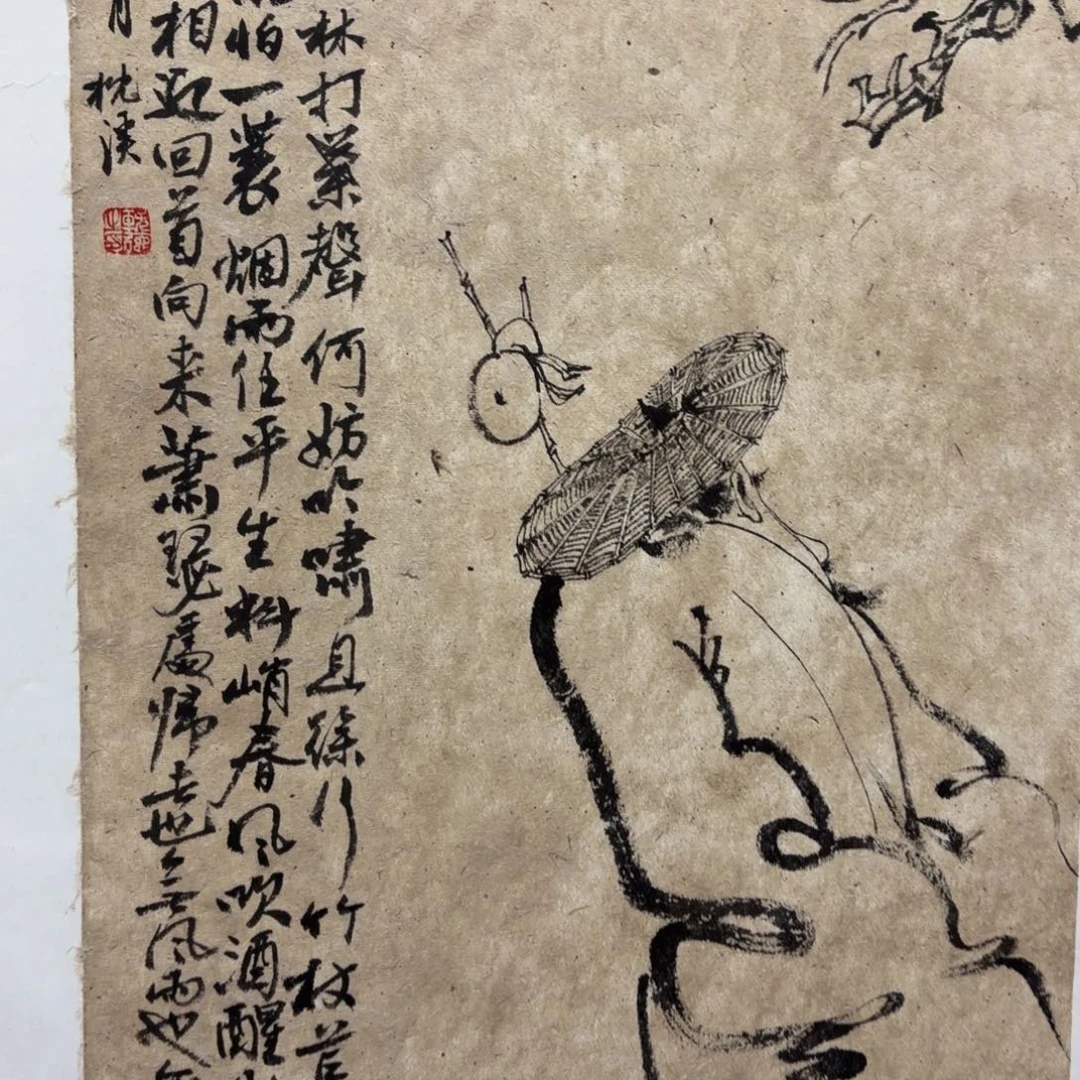 林打葉聲何妨吟嘯且徐行竹杖芒
怕一蓑烟雨任平生料峭春风吹酒醒
相迎回首向来蕭瑟處歸去也無风雨也
月枕溪